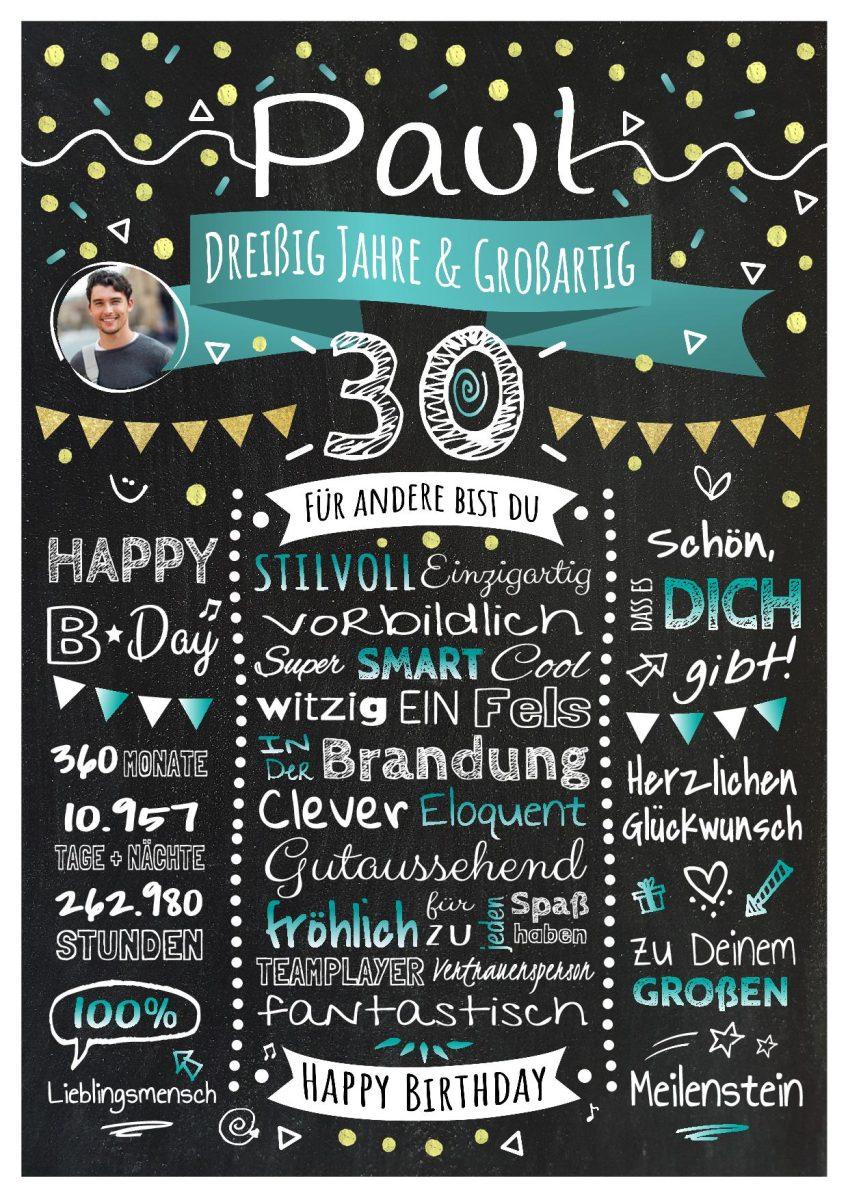 Paul
Dreißig Jahre & Großartig
30
FÜR ANDERE BIST DU
HAPPY
B★Day
360 MONATE
10.957
TAGE + NÄCHTE
262.980
STUNDEN
100%
Lieblingsmensch
STILVOLL Einzigartig
vorbildlich
Super SMART Cool
witzig EIN Fels
IN Der Brandung
Clever Eloquent
Gutaussehend
fröhlich für zu jeden Spaß haben
TEAMPLAYER Vertrauensperson
fantastisch
Happy Birthday
Schön,
DASS ES DICH
gibt!
Herzlichen
Glückwunsch
zu Deinem
GROßEN
Meilenstein